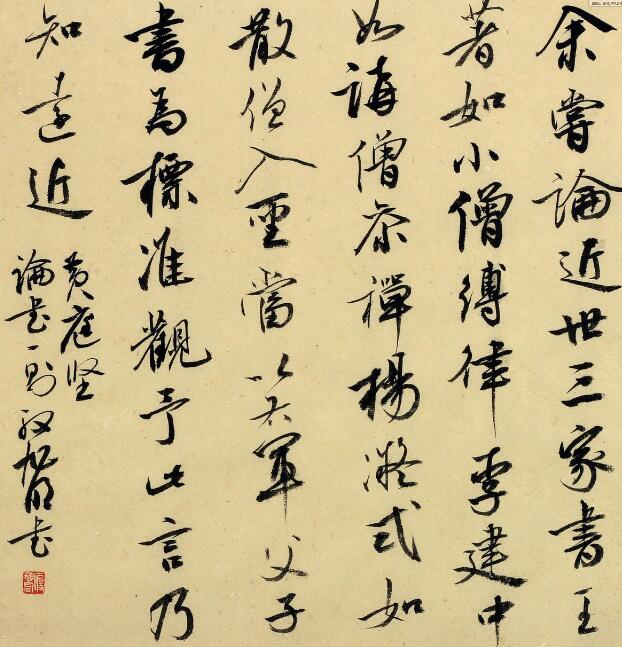 余嘗論近世三家書王
著如小僧縛律李建中
如講僧參禪楊凝式如
散僧入聖當以右軍父子
書為標准觀予此言乃
知遠近
黄庭坚
論書一則 书